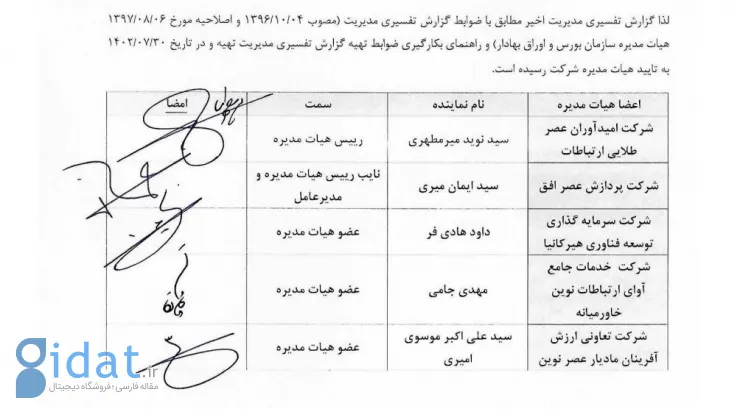 لذا گزارش تفسیری مدیریت اخیر مطابق با ضوابط گزارش تفسیری مدیریت (مصوب ۱۳۹۶/۱۰/۰۴ و اصلاحیه مورخ ۱۳۹۷/۰۸/۰۶
هیات مدیره سازمان بورس و اوراق بهادار) و راهنمای بکارگیری ضوابط تهیه گزارش تفسیری مدیریت تهیه و در تاریخ ۱۴۰۲/۰۷/۳۰
به تایید هیات مدیره شرکت رسیده است.
اعضا هیات مدیره نام نماینده سمت امضا
شرکت امیدآوران عصر
طلایی ارتباطات
سید نوید میرمطهری
رییس هیات مدیره
شرکت پردازش عصر افق
سید ایمان میری
نایب رییس هیات مدیره و
مدیرعامل
شرکت سرمایه گذاری
توسعه فناوری هیرکانیا
داود هادی فر
عضو هیات مدیره
شرکت خدمات جامع
آوای ارتباطات نوین
خاورمیانه
مهدی جامی
عضو هیات مدیره
شرکت تعاونی ارزش
آفرینان مادیار عصر نوین
سید علی اکبر موسوی
امیری
عضو هیات مدیره
gidat.ir
مقاله فارسی؛ فروشگاه دیجیتال